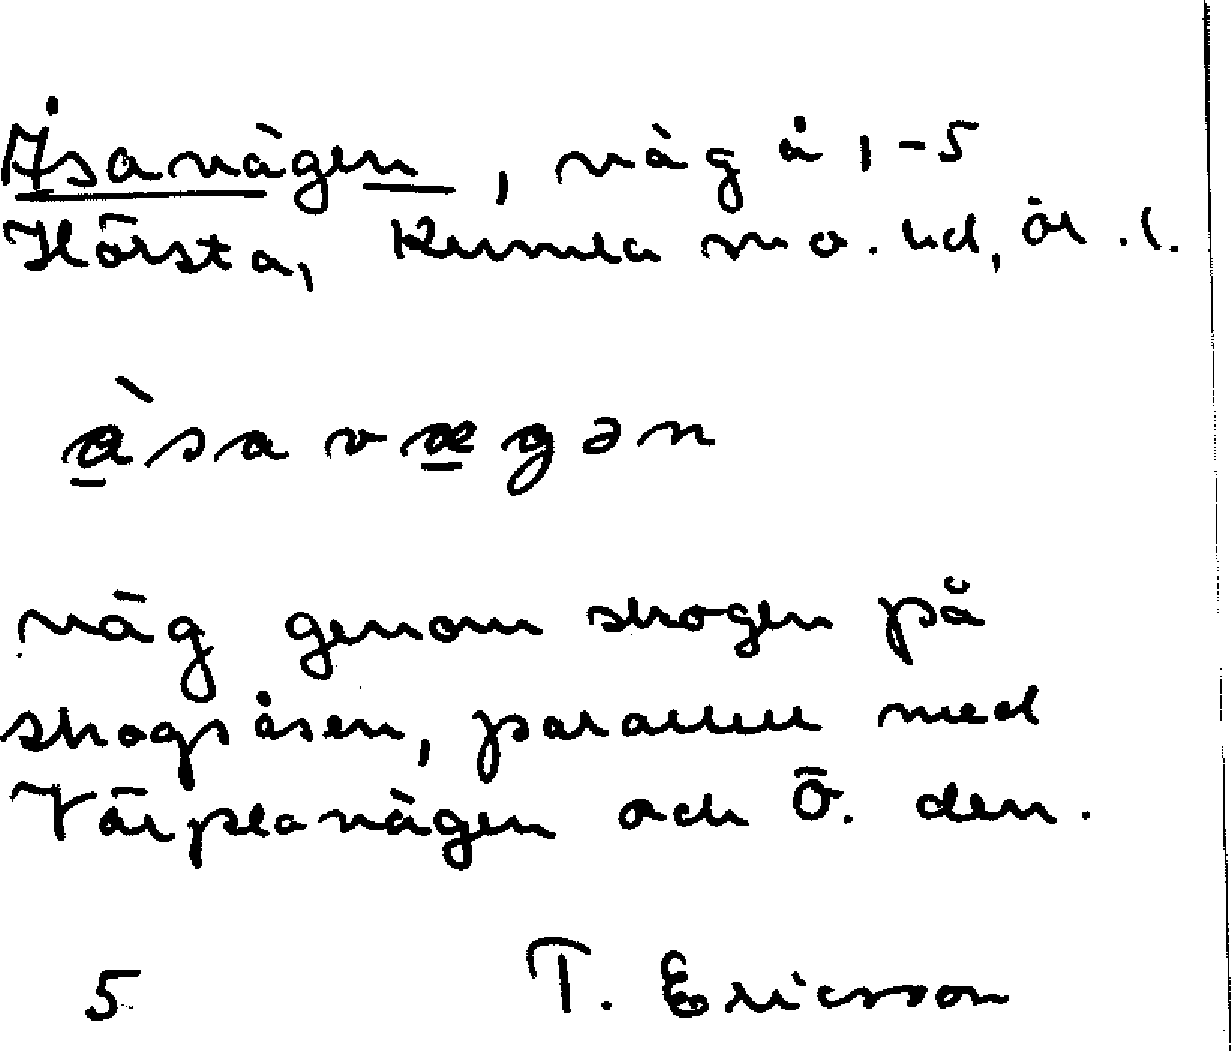 Åsavägen, väg å 1-5
Hörsta, Kumla sn o. hd, ör. l.
àsavægən
väg genom skogen på
skogsåsen, parallell med
Värplavägen och Ö. den.
5 T. Ericsson